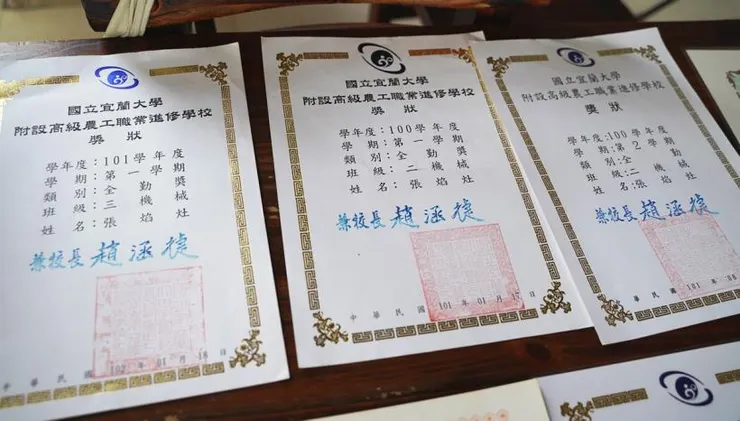 國立宜蘭大學
附設高級農工職業進修學校
獎狀
學年度：101學年度
學期：第一學期
類別：全勤獎
班級：三機械
姓名：張焰灶
兼校長 趙涵捷
中華民國 102 年 01 月 18 日
國立宜蘭大學
附設高級農工職業進修學校
獎狀
學年度：100學年度
學期：第一學期
類別：全勤獎
班級：二機械
姓名：張焰灶
兼校長 趙涵捷
中華民國 101 年 01 月 17 日
國立宜蘭大學
附設高級農工職業進修學校
獎狀
學年度：100學年度
學期：第2學期
類別：全勤
班級：二機械
姓名：張焰灶
兼校長 趙涵捷
華民國 101